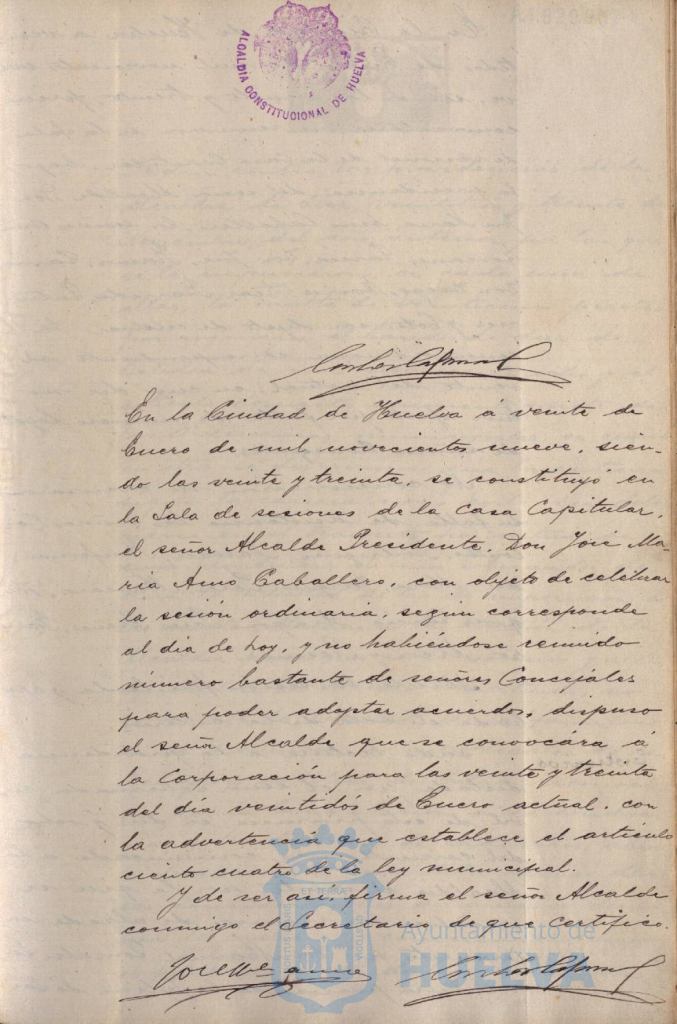 ALCALDIA CONSTITUCIONAL DE HUELVA
En la Ciudad de Huelva á veinte de
Enero de mil novecientos nueve, sien-
do las veinte y treinta, se constituyó en
la Sala de sesiones de la Casa Capitular,
el señor Alcalde Presidente, Don José Ma-
ria Amo Caballero, con objeto de celebrar
la sesión ordinaria, según corresponde
al dia de hoy, y no habiéndose reunido
número bastante de señores Concejales
para poder adoptar acuerdos, dispuso
el señor Alcalde que se convocára á
la Corporación para las veinte y treinta
del día veintidós de Enero actual, con
la advertencia que establece el artículo
ciento cuatro de la ley municipal.
Y de ser así, firma el señor Alcalde
conmigo el Secretario de que certifico.
Ayuntamiento de
HUELVA